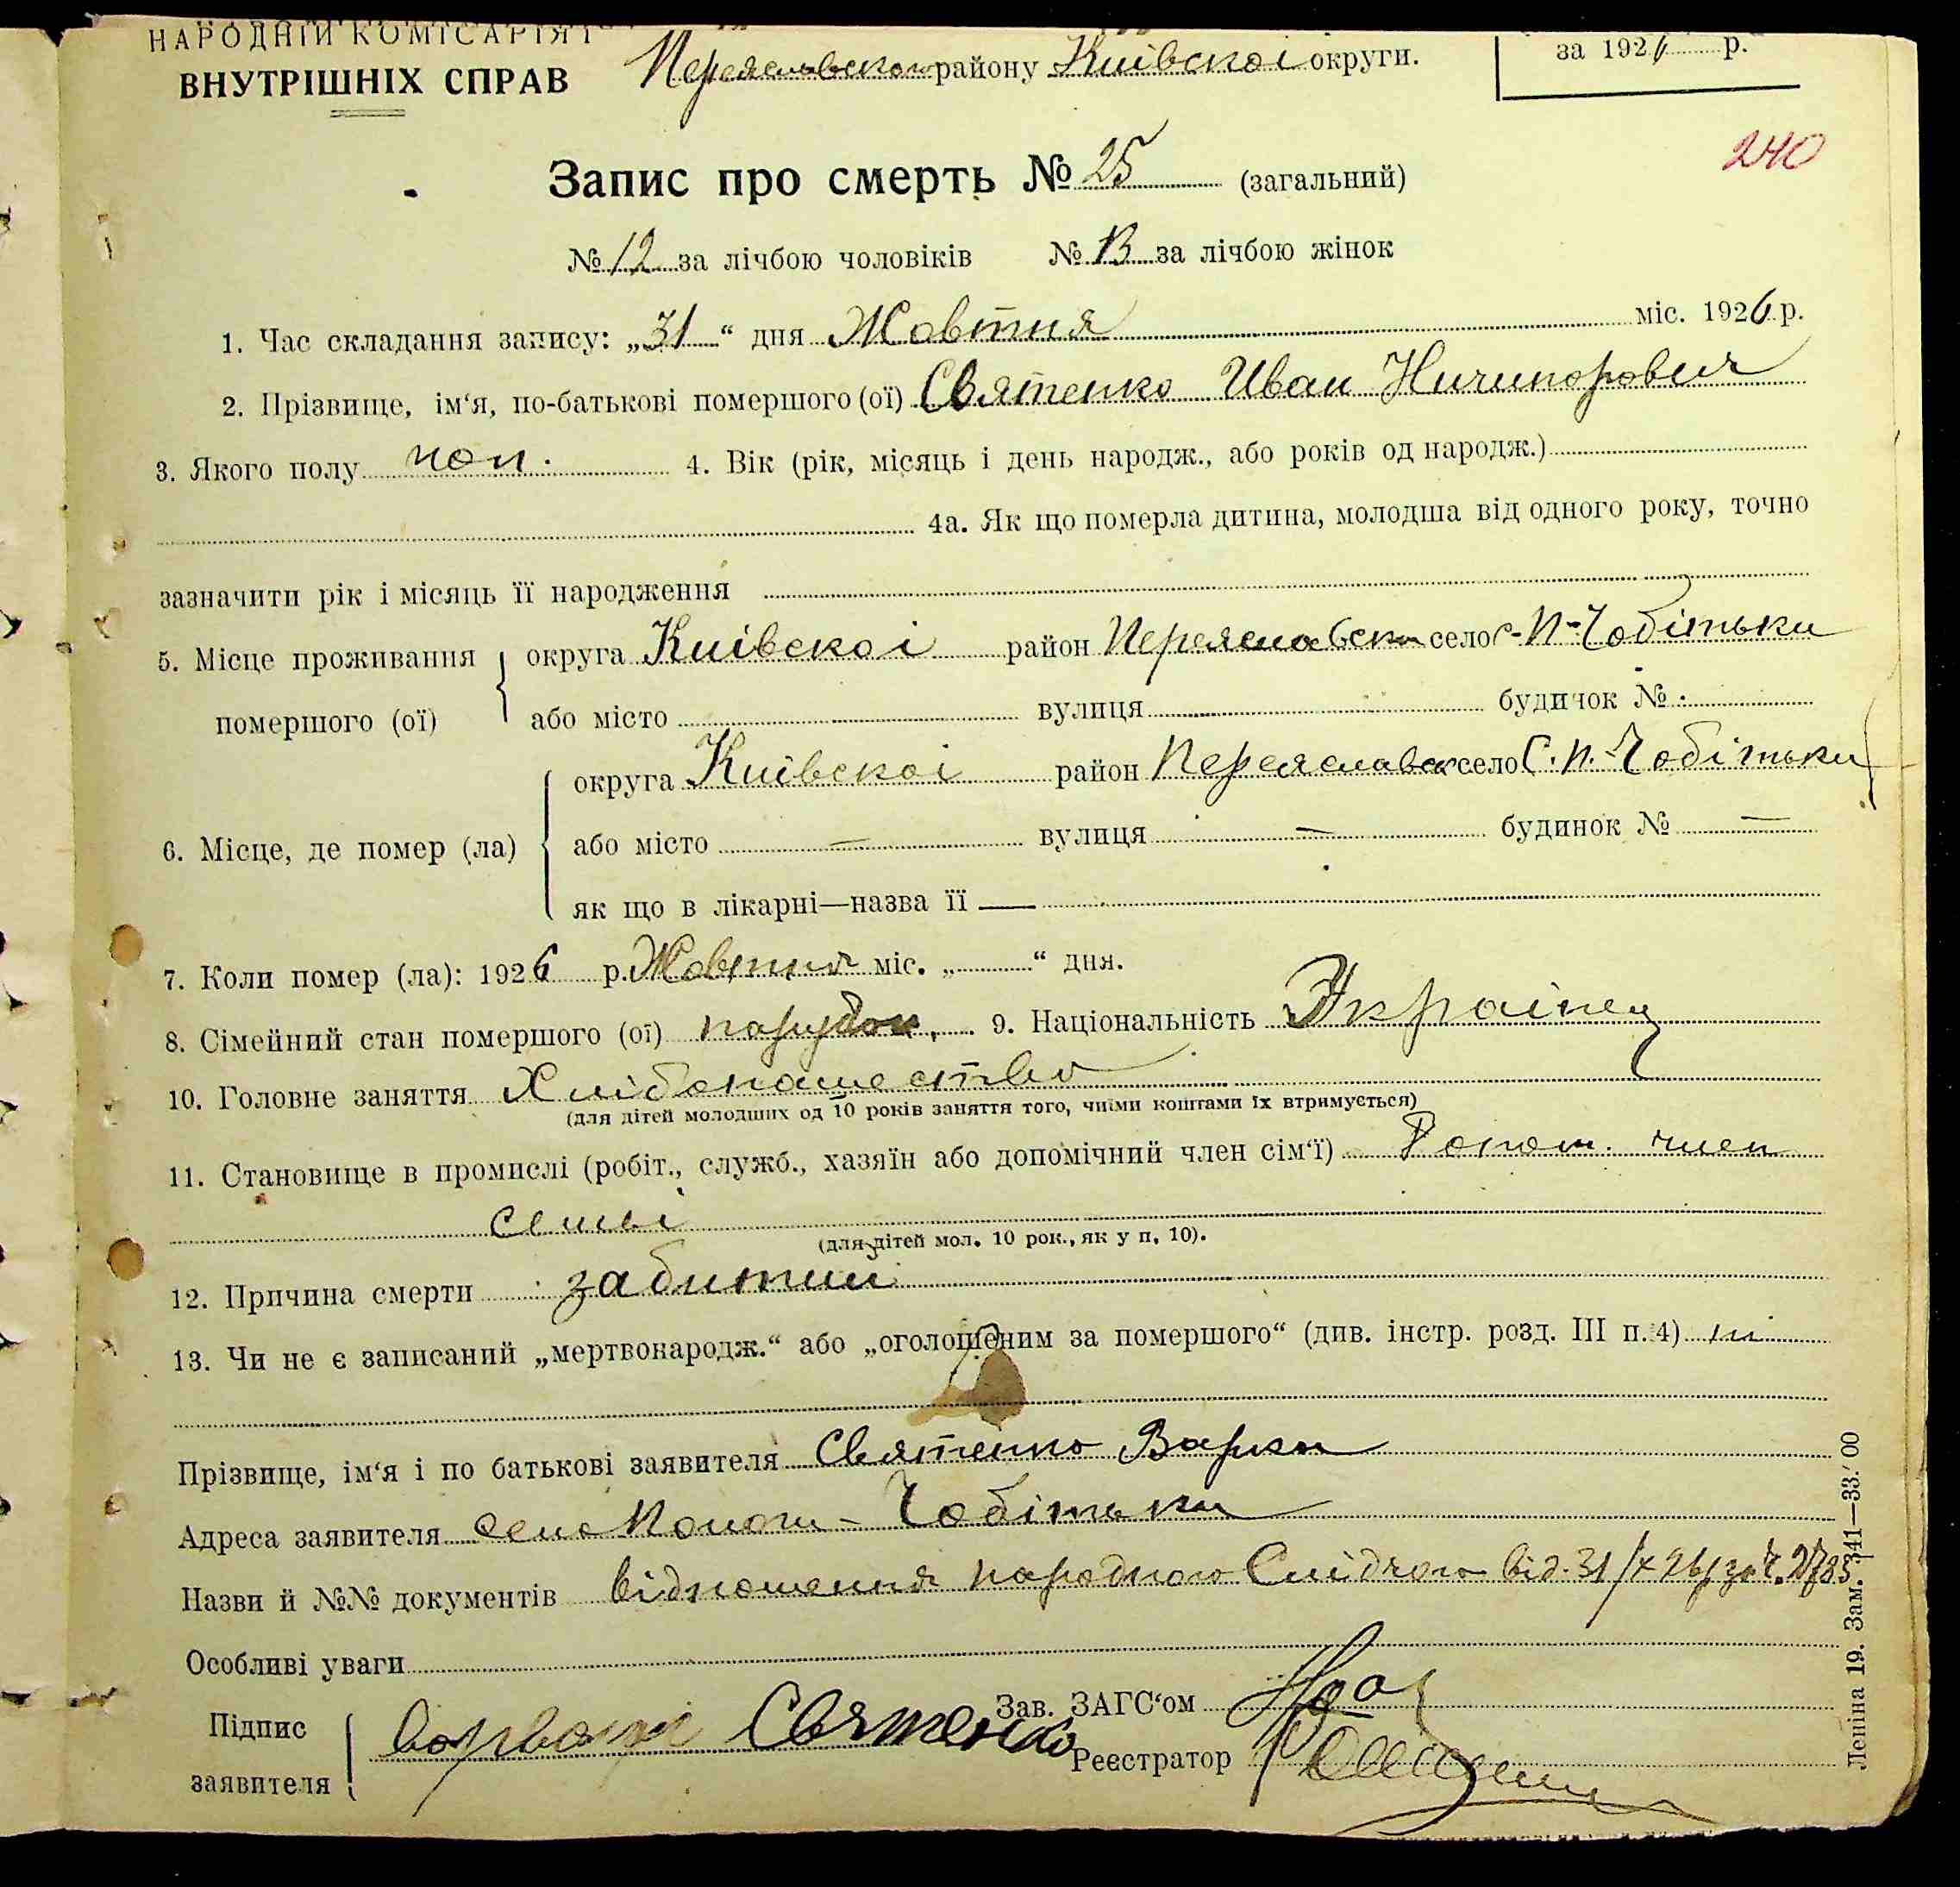 НАРОДНІЙ КОМІСАРІЯТ
ВНУТРІШНІХ СПРАВ
Переяславського району Київскоі округи.
за 1926 р.
240
Запис про смерть № 25 (загальний)
№ 12 за лічбою чоловіків № 13 за лічбою жінок
1. Час складання запису: „31“ дня Жовтня міс. 1926 р.
2. Прізвище, ім‘я, по-батькові помершого (ої) Святенко Иван Ничипорович
3. Якого полу чол. 4. Вік (рік, місяць і день народж., або років од народж.)
4а. Як що померла дитина, молодша від одного року, точно
зазначити рік і місяць її народження
5. Місце проживання помершого (ої) округа Київскоі район Переяславськ село С-П-Чобітьки
або місто вулиця будинок №
6. Місце, де помер (ла) округа Київскоі район Переяславск село С.П.-Чобітьки
або місто — вулиця — будинок № —
як що в лікарні—назва її —
7. Коли помер (ла): 1926 р. Жовтня міс. „ “ дня.
8. Сімейний стан помершого (ої) парубок, 9. Національність Украінец
10. Головне заняття Хлібопашество
(для дітей молодших од 10 років заняття того, чиїми коштами їх втримується)
11. Становище в промислі (робіт., служб., хазяїн або допомічний член сім‘ї) Допом. член
семьі
(для дітей мол. 10 рок., як у п. 10).
12. Причина смерти забитий
13. Чи не є записаний „мертвонародж.“ або „оголошеним за помершого“ (див. інстр. розд. III п. 4) ні
Прізвище, ім‘я і по батькові заявителя Святенко Варка
Адреса заявителя село Полог-Чобітьки
Назви й №№ документів відношення народного Слідчого від 31/X 26р за Ч. 2783
Особливі уваги
Зав. ЗАГС‘ом
Підпис заявителя Святенко
Реєстратор
Леніна 19. Зам. 341—33.′00